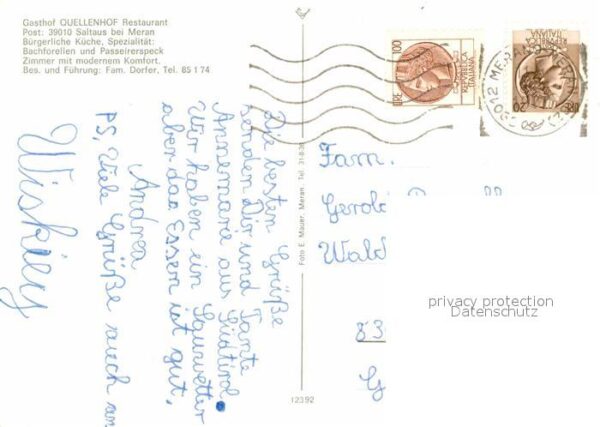 Gasthof QUELLENHOF Restaurant
Post: 39010 Saltaus bei Meran
Bürgerliche Küche, Spezialität:
Bachforellen und Passeirerspeck
Zimmer mit modernem Komfort.
Bes. und Führung: Fam. Dorfer, Tel. 85 1 74
Die besten Grüße
senden Dir und Tante
Annemarie aus Südtirol.
Wir haben ein Sauwetter
aber das Essen ist gut.
Andrea
PS, Viele Grüße auch an
Foto E. Mauer, Meran, Tel.
12392
LIRE 100
REPUBBLICA
ITALIANA
LIRE 20
REPUBBLICA
ITALIANA
Fam.
Wald
53
privacy protection
Datenschutz